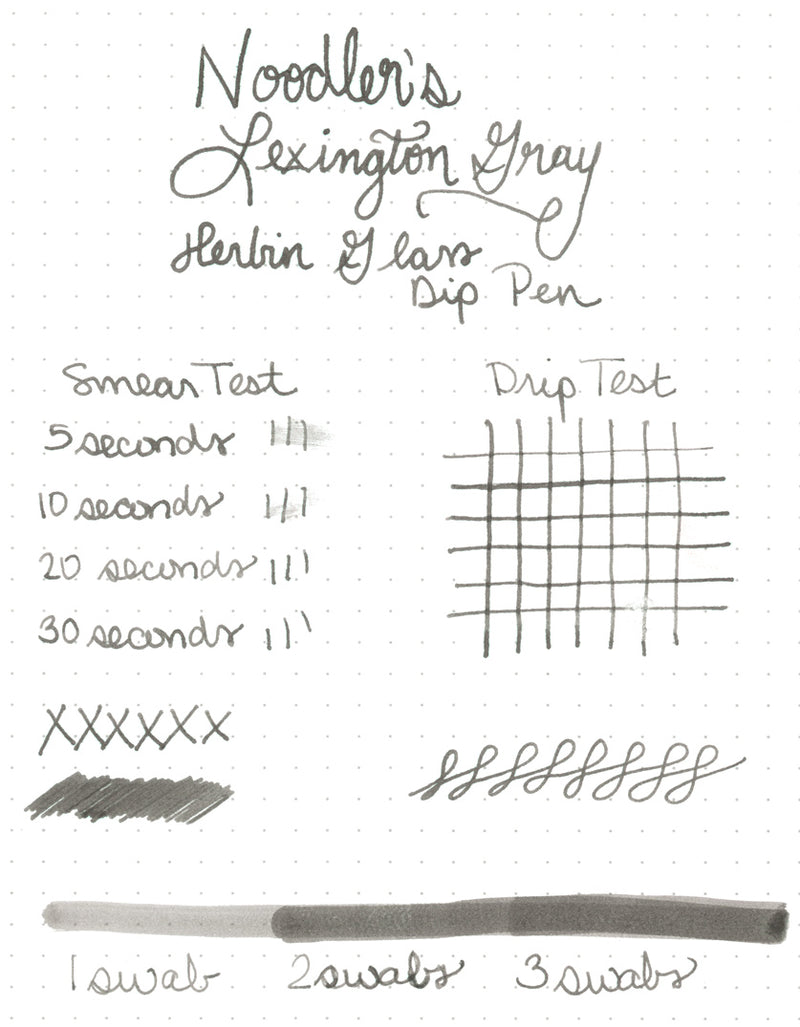 Noodler's
Lexington Gray
Herbin Glass
Dip Pen
Smear Test
5 seconds
10 seconds
20 seconds
30 seconds
Drip Test
XXXXXX
1 swab 2 swabs 3 swabs